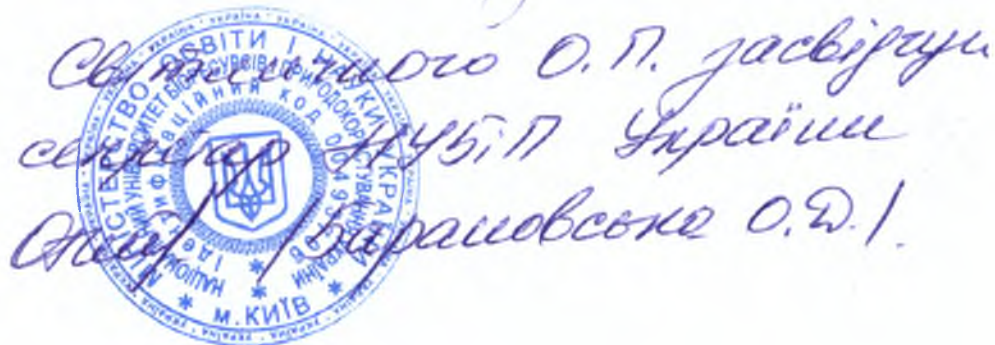 О.П. засвідчую
секретар НУБіП України
/Барановська О.Д./
МІНІСТЕРСТВО ОСВІТИ І НАУКИ УКРАЇНИ
НАЦІОНАЛЬНИЙ УНІВЕРСИТЕТ БІОРЕСУРСІВ І ПРИРОДОКОРИСТУВАННЯ УКРАЇНИ
Ідентифікаційний код
* м.КИЇВ *